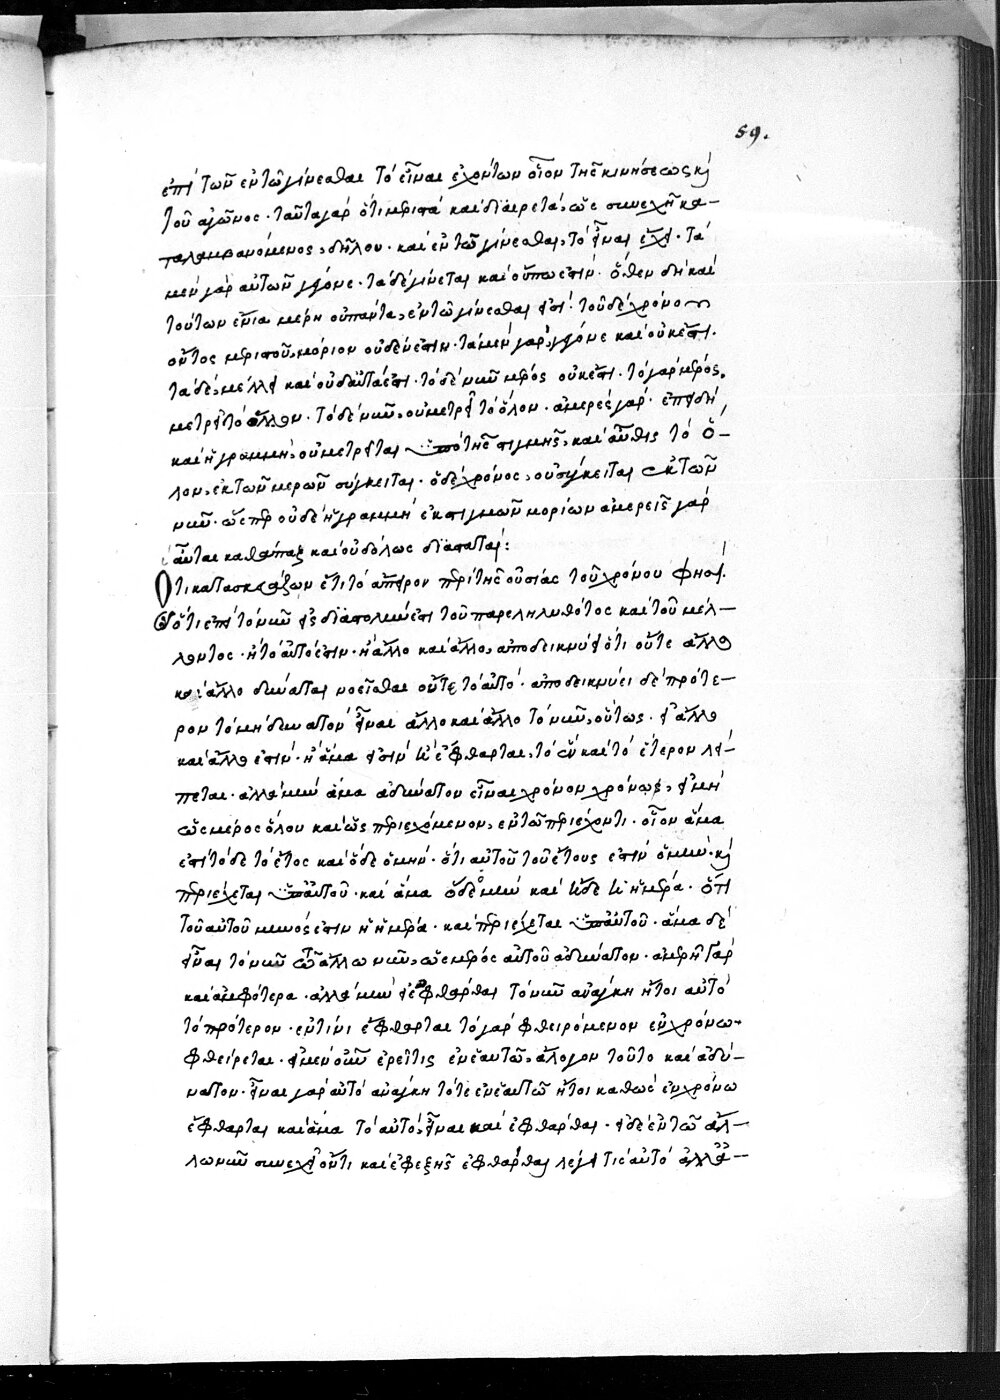 59.
ἐπὶ τῶν ἐν τῶ γίνεσθαι τὸ εἶναι ἐχόντων οἷον τῆς κινήσεως κ
τοῦ ἀγῶνος· ταῦτα γὰρ ὅτι μεριστὰ καὶ διαιρετὰ, ὡς συνεχῆ κα-
ταλαμβανόμενος, δῆλον· καὶ ἐν τῶ γίνεσθαι, τὸ εἶναι ἔχει· τὰ
μὲν γὰρ αὐτῶν γέγονε· τὰ δὲ γίνεται καὶ οὔπω ἐστίν· ὅθεν δὴ καὶ
τούτων ἔνια μέρη οὐ πάντα, ἐν τῶ γίνεσθαι ἐστί· τοῦ δὲ χρόνου
ὄντος μεριστοῦ, μόριον οὐδέν ἐστιν· τὰ μὲν γὰρ, γέγονε καὶ οὐκ ἔστι·
τὰ δὲ, μέλλει καὶ οὐδαῦτα ἐστι· τὸ δὲ νῦν μέρος οὐκ ἔστι· τὸ γὰρ μέρος,
μετρεῖ τὸ ὅλον· τὸ δὲ νῦν, οὐ μετρεῖ τὸ ὅλον· ἀμερὲς γάρ· ἐπειδὴ
καὶ ἡ γραμμὴ, οὐ μετρεῖται ὑπὸ τῆς στιγμῆς, καὶ αὖθις τὸ ὅ-
λον, ἐκ τῶν μερῶν σύγκειται· ὁ δὲ χρόνος, οὐ σύγκειται ἐκ τῶν
νῦν· ὥσπερ οὐδὲ ἡ γραμμὴ ἐκ στιγμῶν μορίων ἀμερεῖς γὰρ
αὗται καθάπαξ καὶ οὐδόλως διαστατα:
Ὅτι κατασκευάζων ἔτι τὸ ἄπορον περὶ τῆς οὐσίας τοῦ χρόνου φησὶ
ὅτι ἐπὶ τὸ νῦν διάστολον ἐστὶ τοῦ παρεληλυθότος καὶ τοῦ μέλ-
λοντος· ἢ τὸ αὐτό ἐστιν· ἢ ἄλλο καὶ ἄλλο, ἀποδεικνύει ὅτι οὔτε ἄλλο
καὶ ἄλλο δύναται νοεῖσθαι οὔτε τὸ αὐτό· ἀποδεικνύει δὲ πρότε-
ρον τὸ μὴ δυνατὸν εἶναι ἄλλο καὶ ἄλλο τὸ νῦν, οὕτως· εἰ ἄλλο
καὶ ἄλλο ἐστίν· ἢ ἅμα ἐστὶν ἢ ἔφθαρται, τὸ ἓν καὶ τὸ ἕτερον λεί-
πεται· ἀλλὰ μὴν ἅμα ἀδύνατον εἶναι χρόνον χρόνω, εἰ μὴ
ὡς μέρος ὅλου καὶ ὡς περιεχόμενον, ἐν τῶ περιέχοντι· οἷον ἅμα
ἐστὶ τόδε τὸ ἔτος καὶ ὅδε ὁ μήν· ὅτι αὐτοῦ τοῦ ἔτους ἐστὶν ὁ μὴν· κ
περιέχεται ὑπ' αὐτοῦ· καὶ ἅμα ὅδε ὁ μὴν καὶ ἥδε ἡ ἡμέρα· ὅτι
τοῦ αὐτοῦ μηνός ἐστιν ἡ ἡμέρα· καὶ περιέχεται ὑπ' αὐτοῦ· ἅμα δὲ
εἶναι τὸ νῦν τῶ ἄλλω νῦν, ὡς μέρος αὐτοῦ ἀδύνατον· ἀμερῆ γὰρ
καὶ ἀμφότερα· ἀλλὰ μὴν εἰ ἔφθαρται τὸ νῦν ἀνάγκη ἤτοι αὐτὸ
τὸ πρότερον· ἐν τίνι ἔφθαρται τὸ γὰρ φθειρόμενον ἐν χρόνω
φθείρεται· εἰ μὲν οὖν ἐρεῖ τις ἐν ἑαυτῶ, ἄλογον τοῦτο καὶ ἀδύ-
νατον· εἶναι γὰρ αὐτὸ ἀνάγκη τότε ἐν ἑαυτῶ ἤτοι καθ' ὃ ἐν χρόνω
ἔφθαρται καὶ ἅμα τὸ αὐτὸ, εἶναι καὶ ἐφθάρθαι· εἰ δὲ ἐν τῶ ἄλ-
λω νῦν συνεχεῖ ὄντι καὶ ἐφεξῆς ἐφθάρθαι λέγει τις αὐτὸ ἀλλ-